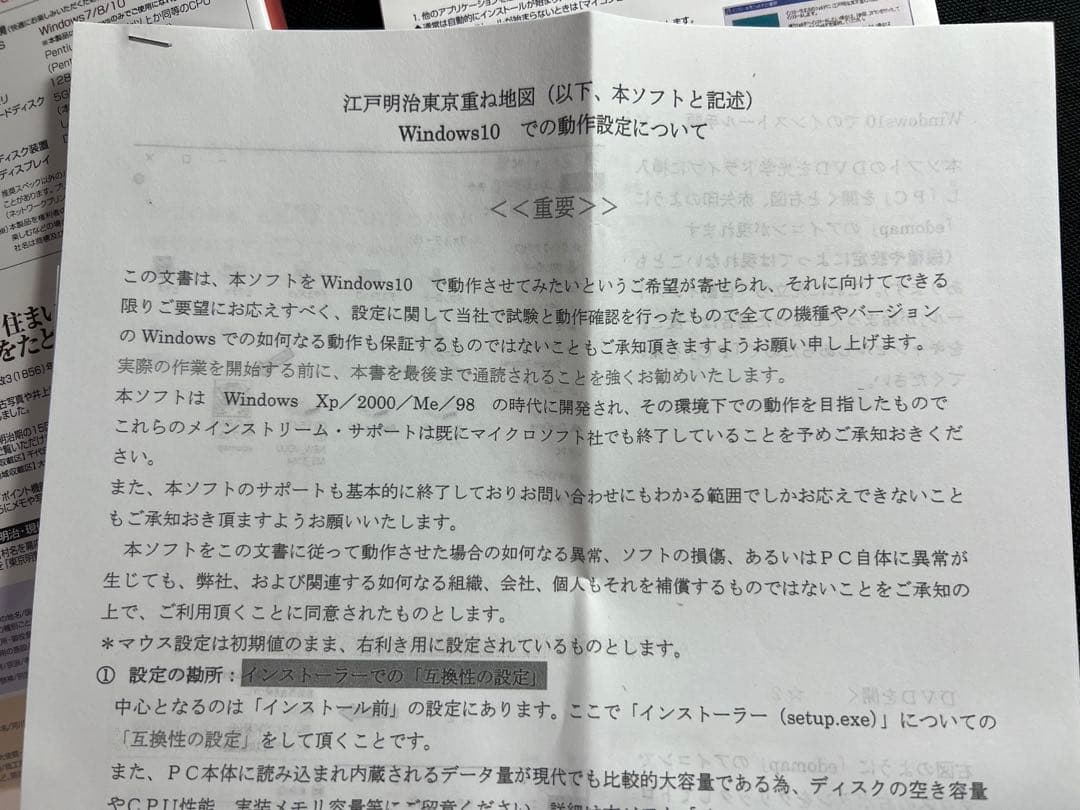 江戸明治東京重ね地図（以下、本ソフトと記述）
Windows10　での動作設定について
＜＜重要＞＞
この文書は、本ソフトをWindows10　で動作させてみたいというご希望が寄せられ、それに向けてできる
限りご要望にお応えすべく、設定に関して当社で試験と動作確認を行ったもので全ての機種やバージョン
のWindowsでの如何なる動作も保証するものではないこともご承知頂きますようお願い申し上げます。
実際の作業を開始する前に、本書を最後まで通読されることを強くお勧めいたします。
本ソフトは　Windows　Xp／2000／Me／98　の時代に開発され、その環境下での動作を目指したもので
これらのメインストリーム・サポートは既にマイクロソフト社でも終了していることを予めご承知おきくだ
さい。
また、本ソフトのサポートも基本的に終了しておりお問い合わせにもわかる範囲でしかお応えできないこと
もご承知おき頂ますようお願いいたします。
本ソフトをこの文書に従って動作させた場合の如何なる異常、ソフトの損傷、あるいはＰＣ自体に異常が
生じても、弊社、および関連する如何なる組織、会社、個人もそれを補償するものではないことをご承知の
上で、ご利用頂くことに同意されたものとします。
＊マウス設定は初期値のまま、右利き用に設定されているものとします。
① 設定の勘所：インストーラーでの「互換性の設定」
中心となるのは「インストール前」の設定にあります。ここで「インストーラー（setup.exe）」についての
「互換性の設定」をして頂くことです。
また、ＰＣ本体に読み込まれ内蔵されるデータ量が現代でも比較的大容量である為、ディスクの空き容量
やＣＰＵ性能、実装メモリ容量等にご留意ください。
Windows7/8/10
ードディスク
ィスク装置
ディスプレイ
推奨スペック以外の
ことがあります。
住まい
をたと